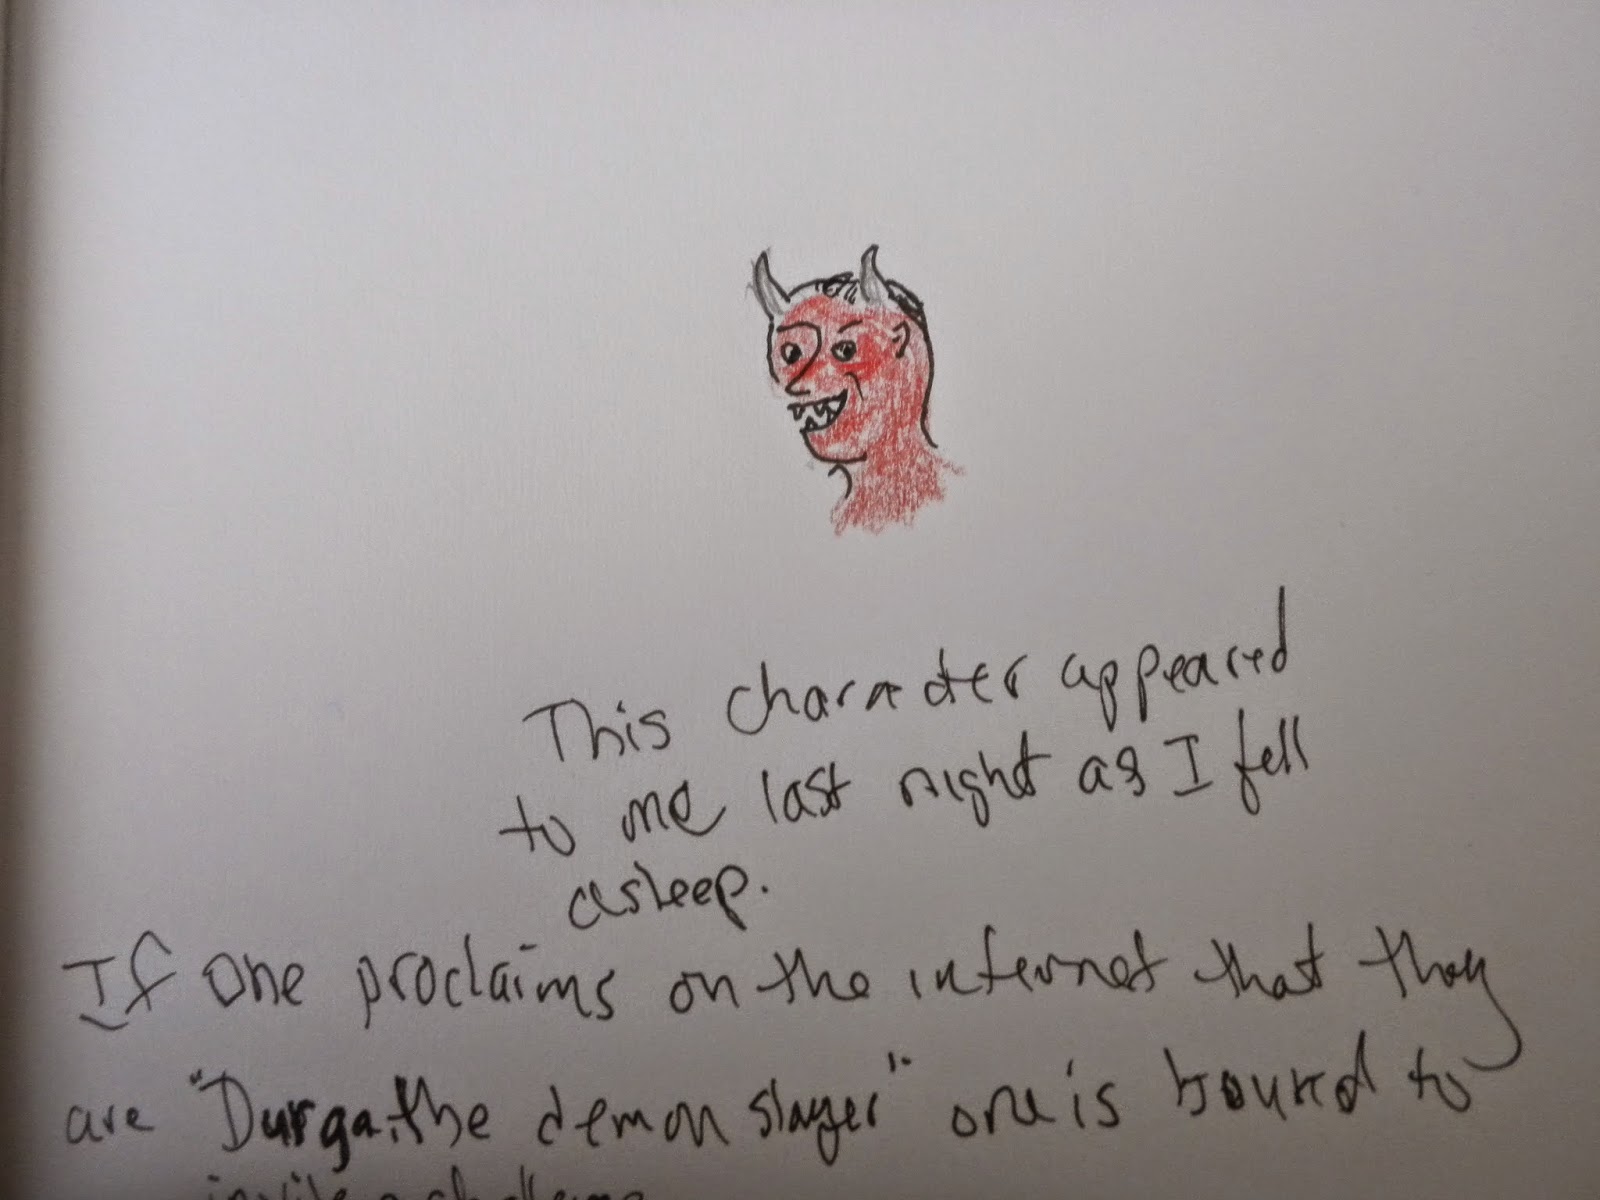 This character appeared
to me last night as I fell
asleep.
If one proclaims on the internet that they
are "Durga the demon slayer" one is bound to
invite a challenge